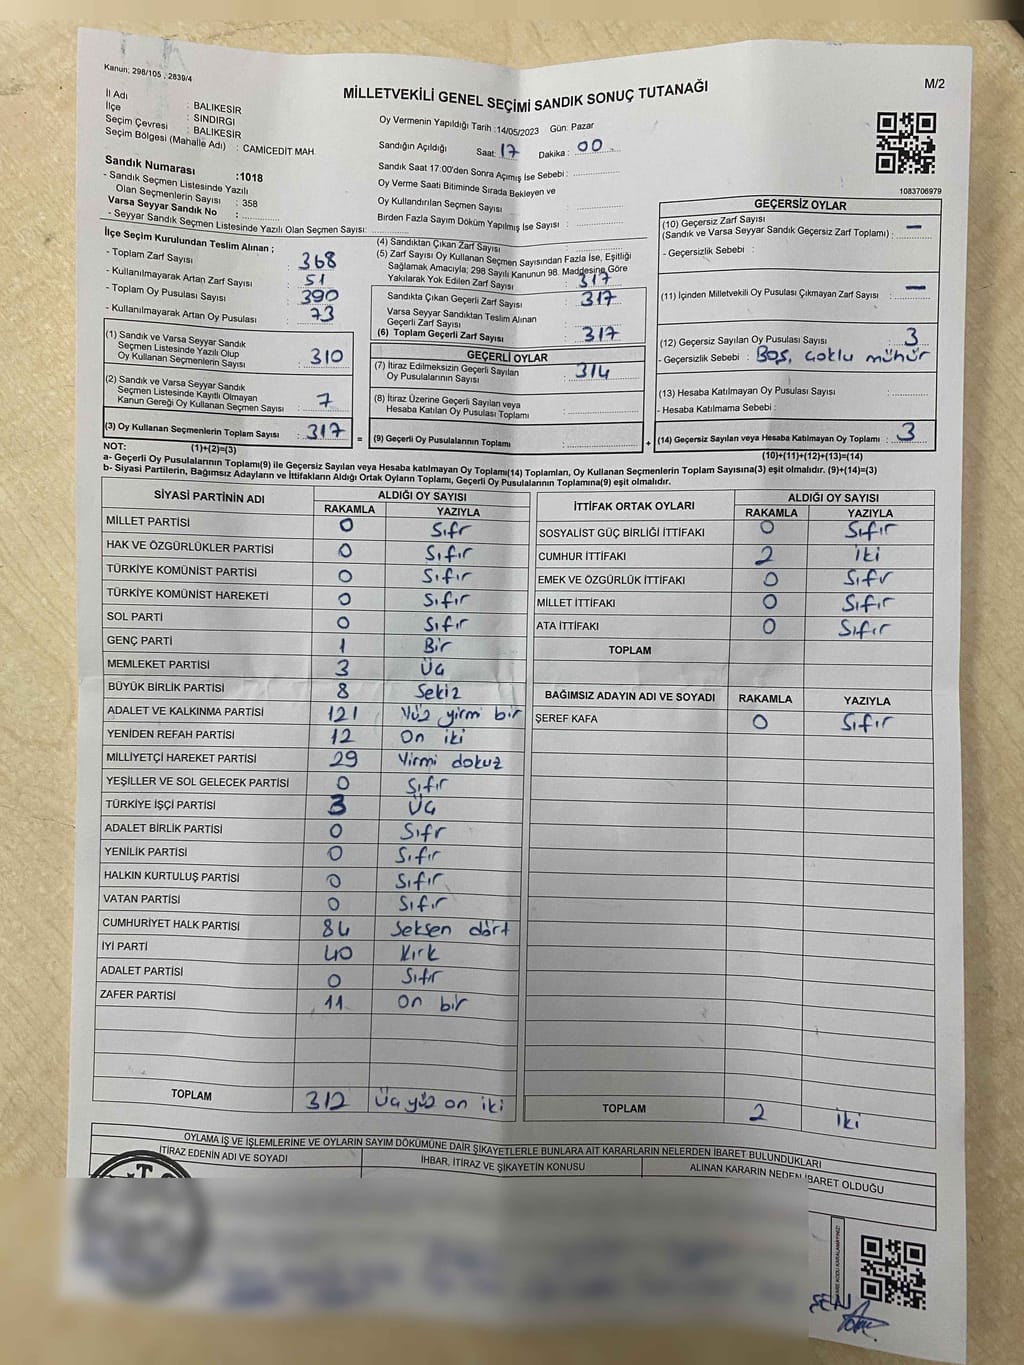 Kanun; 298/105 , 2839/4
M/2
MİLLETVEKİLİ GENEL SEÇİMİ SANDIK SONUÇ TUTANAĞI
İl Adı : BALIKESİR
İlçe : SINDIRGI
Seçim Çevresi : BALIKESİR
Seçim Bölgesi (Mahalle Adı) : CAMİCEDİT MAH.
Sandık Numarası :1018
- Sandık Seçmen Listesinde Yazılı
Olan Seçmenlerin Sayısı : 358
Varsa Seyyar Sandık No :
- Seyyar Sandık Seçmen Listesinde Yazılı Olan Seçmen Sayısı:
Oy Vermenin Yapıldığı Tarih :14/05/2023 Gün: Pazar
Sandığın Açıldığı Saat: 17 Dakika : 00
Sandık Saat 17:00'den Sonra Açmış İse Sebebi :
Oy Verme Saati Bitiminde Sırada Bekleyen ve
Oy Kullandırılan Seçmen Sayısı :
Birden Fazla Sayım Döküm Yapılmış İse Sayısı :
1083706979
İlçe Seçim Kurulundan Teslim Alınan ;
- Toplam Zarf Sayısı : 368
- Kullanılmayarak Artan Zarf Sayısı : 51
- Toplam Oy Pusulası Sayısı : 390
- Kullanılmayarak Artan Oy Pusulası : 73
(1) Sandık ve Varsa Seyyar Sandık
Seçmen Listesinde Yazılı Olup
Oy Kullanan Seçmenlerin Sayısı : 310
(2) Sandık ve Varsa Seyyar Sandık
Seçmen Listesinde Kayıtlı Olmayan
Kanun Gereği Oy Kullanan Seçmen Sayısı : 7
(3) Oy Kullanan Seçmenlerin Toplam Sayısı : 317
(1)+(2)=(3)
(4) Sandıktan Çıkan Zarf Sayısı :
(5) Zarf Sayısı Oy Kullanan Seçmen Sayısından Fazla İse, Eşitliği
Sağlamak Amacıyla; 298 Sayılı Kanunun 98. Maddesine Göre
Yakılarak Yok Edilen Zarf Sayısı : 317
Sandıkta Çıkan Geçerli Zarf Sayısı : 317
Varsa Seyyar Sandıktan Teslim Alınan
Geçerli Zarf Sayısı :
(6) Toplam Geçerli Zarf Sayısı : 317
GEÇERLİ OYLAR
(7) İtiraz Edilmeksizin Geçerli Sayılan
Oy Pusulalarının Sayısı : 314
(8) İtiraz Üzerine Geçerli Sayılan veya
Hesaba Katılan Oy Pusulası Toplamı :
= (9) Geçerli Oy Pusulalarının Toplamı :
GEÇERSİZ OYLAR
(10) Geçersiz Zarf Sayısı
(Sandık ve Varsa Seyyar Sandık Geçersiz Zarf Toplamı) : —
- Geçersizlik Sebebi :
(11) İçinden Milletvekili Oy Pusulası Çıkmayan Zarf Sayısı : —
(12) Geçersiz Sayılan Oy Pusulası Sayısı : 3
- Geçersizlik Sebebi : Boş, çoklu mühür
(13) Hesaba Katılmayan Oy Pusulası Sayısı :
- Hesaba Katılmama Sebebi :
+ (14) Geçersiz Sayılan veya Hesaba Katılmayan Oy Toplamı : 3
(10)+(11)+(12)+(13)=(14)
NOT:
a- Geçerli Oy Pusulalarının Toplamı(9) ile Geçersiz Sayılan veya Hesaba katılmayan Oy Toplamı(14) Toplamları, Oy Kullanan Seçmenlerin Toplam Sayısına(3) eşit olmalıdır. (9)+(14)=(3)
b- Siyasi Partilerin, Bağımsız Adayların ve İttifakların Aldığı Ortak Oyların Toplamı, Geçerli Oy Pusulalarının Toplamına(9) eşit olmalıdır.
SİYASİ PARTİNİN ADI ALDIĞI OY SAYISI
RAKAMLA YAZIYLA
MİLLET PARTİSİ 0 Sıfr
HAK VE ÖZGÜRLÜKLER PARTİSİ 0 Sıfır
TÜRKİYE KOMÜNİST PARTİSİ 0 Sıfır
TÜRKİYE KOMÜNİST HAREKETİ 0 Sıfır
SOL PARTİ 0 Sıfır
GENÇ PARTİ 1 Bir
MEMLEKET PARTİSİ 3 Üç
BÜYÜK BİRLİK PARTİSİ 8 Sekiz
ADALET VE KALKINMA PARTİSİ 121 Yüz yirmi bir
YENİDEN REFAH PARTİSİ 12 On iki
MİLLİYETÇİ HAREKET PARTİSİ 29 Yirmi dokuz
YEŞİLLER VE SOL GELECEK PARTİSİ 0 Sıfır
TÜRKİYE İŞÇİ PARTİSİ 3 Üç
ADALET BİRLİK PARTİSİ 0 Sıfr
YENİLİK PARTİSİ 0 Sıfır
HALKIN KURTULUŞ PARTİSİ 0 Sıfır
VATAN PARTİSİ 0 Sıfır
CUMHURİYET HALK PARTİSİ 84 Seksen dört
İYİ PARTİ 40 Kırk
ADALET PARTİSİ 0 Sıfır
ZAFER PARTİSİ 11 On bir
TOPLAM 312 Üç yüz on iki
İTTİFAK ORTAK OYLARI ALDIĞI OY SAYISI
RAKAMLA YAZIYLA
SOSYALİST GÜÇ BİRLİĞİ İTTİFAKI 0 Sıfır
CUMHUR İTTİFAKI 2 iki
EMEK VE ÖZGÜRLÜK İTTİFAKI 0 Sıfır
MİLLET İTTİFAKI 0 Sıfır
ATA İTTİFAKI 0 Sıfır
TOPLAM
BAĞIMSIZ ADAYIN ADI VE SOYADI RAKAMLA YAZIYLA
ŞEREF KAFA 0 Sıfır
TOPLAM 2 iki
OYLAMA İŞ VE İŞLEMLERİNE VE OYLARIN SAYIM DÖKÜMÜNE DAİR ŞİKAYETLERLE BUNLARA AİT KARARLARIN NELERDEN İBARET BULUNDUKLARI
İTİRAZ EDENİN ADI VE SOYADI
İHBAR, İTİRAZ VE ŞİKAYETİN KONUSU
ALINAN KARARIN NEDEN İBARET OLDUĞU